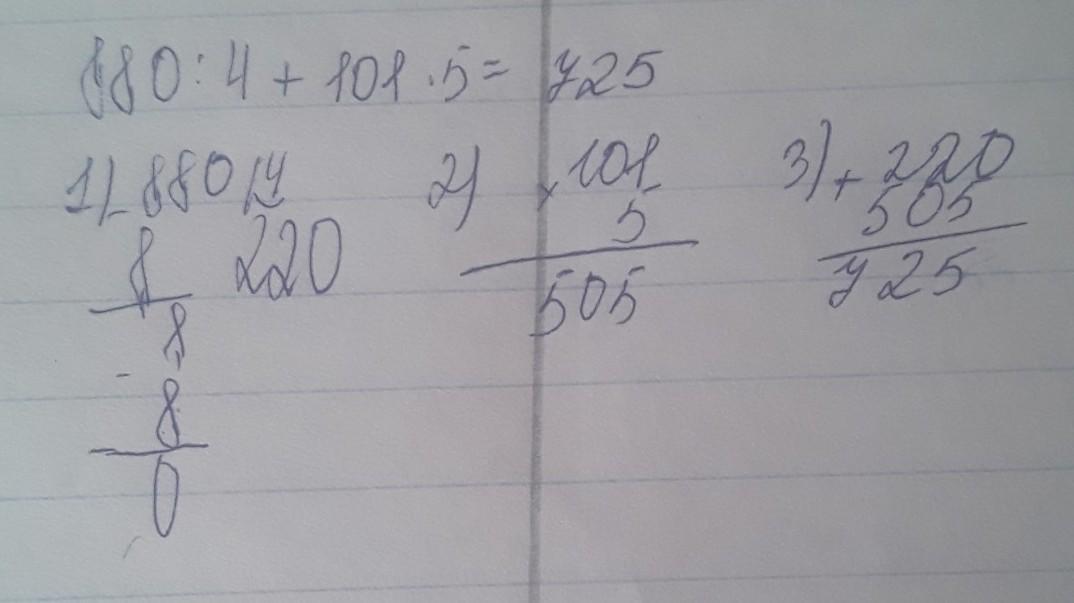 880:4+101·5=725
1) 880 4 2) 101 3) 220
- × +
8 220 5 505
8 505 725
-
8
0